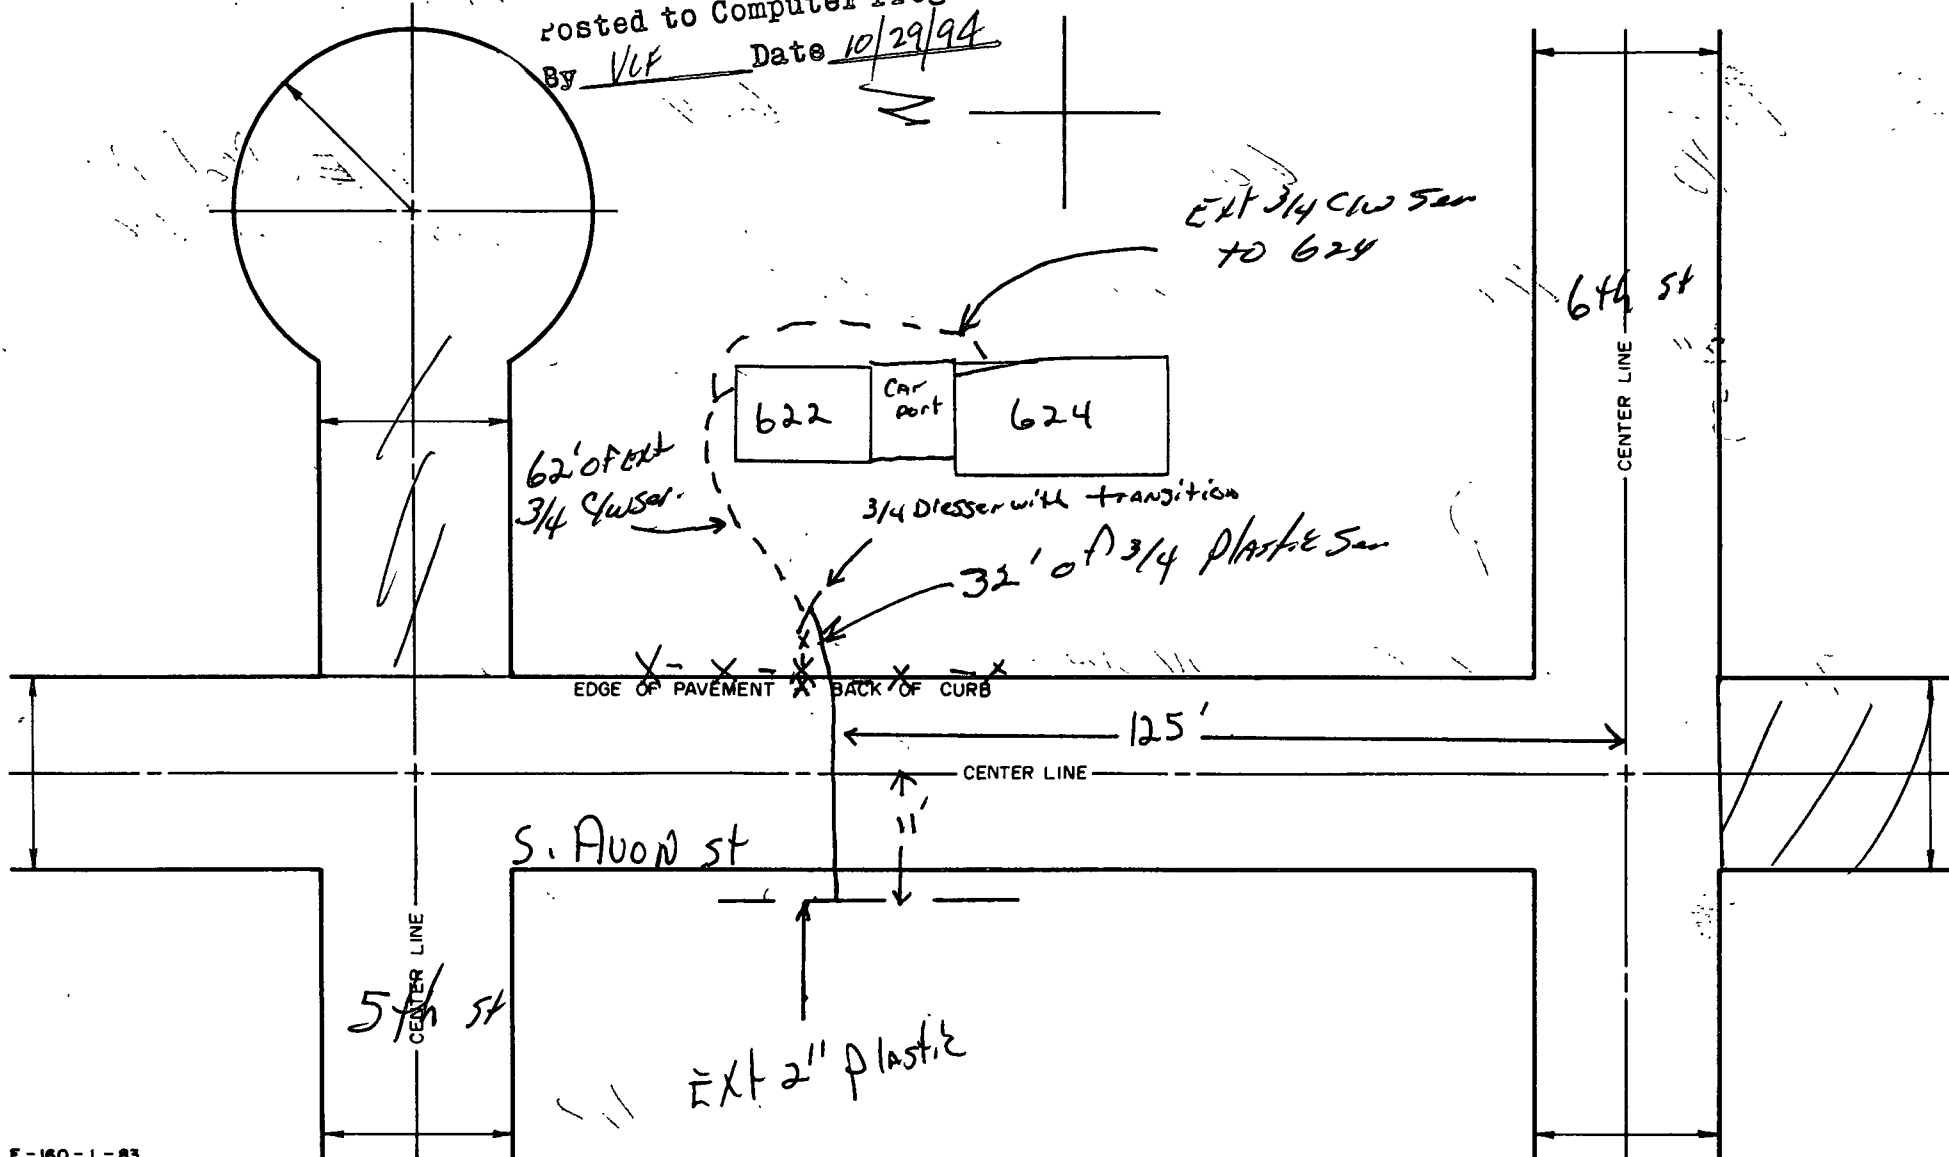 Posted to Computer
By VCF Date 10/29/94
Z
Ext 3/4 C/W Ser
to 624
6th st
CENTER LINE
622
CAR
Port
624
62' of Ext
3/4 C/W Ser.
3/4 Dresser with transition
32' of 3/4 Plastic Ser
EDGE OF PAVEMENT BACK OF CURB
125'
CENTER LINE
11'
S. Avon st
CENTER LINE
5th st
Ext 2" plastic
F-160-1-83